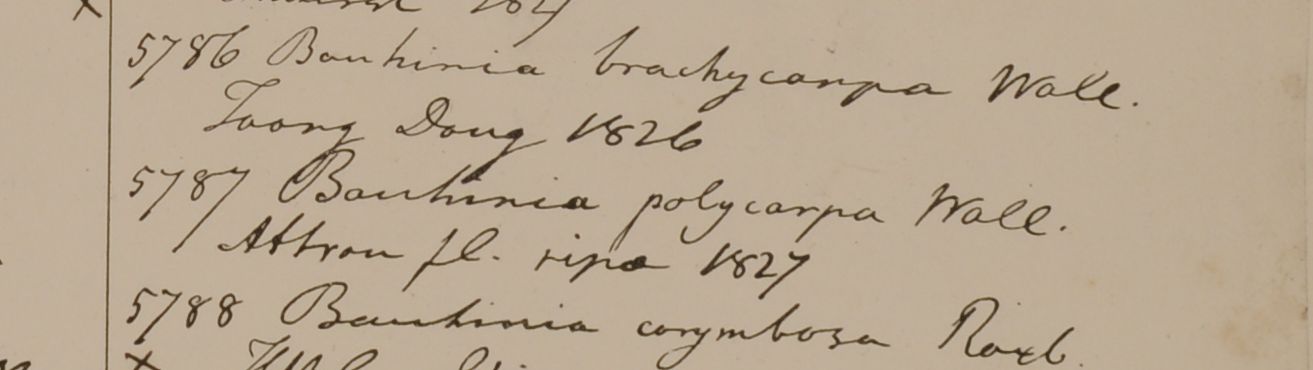 5786 Bauhinia brachycarpa Wall.
Toong Dong 1826
5787 Bauhinia polycarpa Wall.
Attran fl. ripa 1827
5788 Bauhinia corymbosa Roxb.